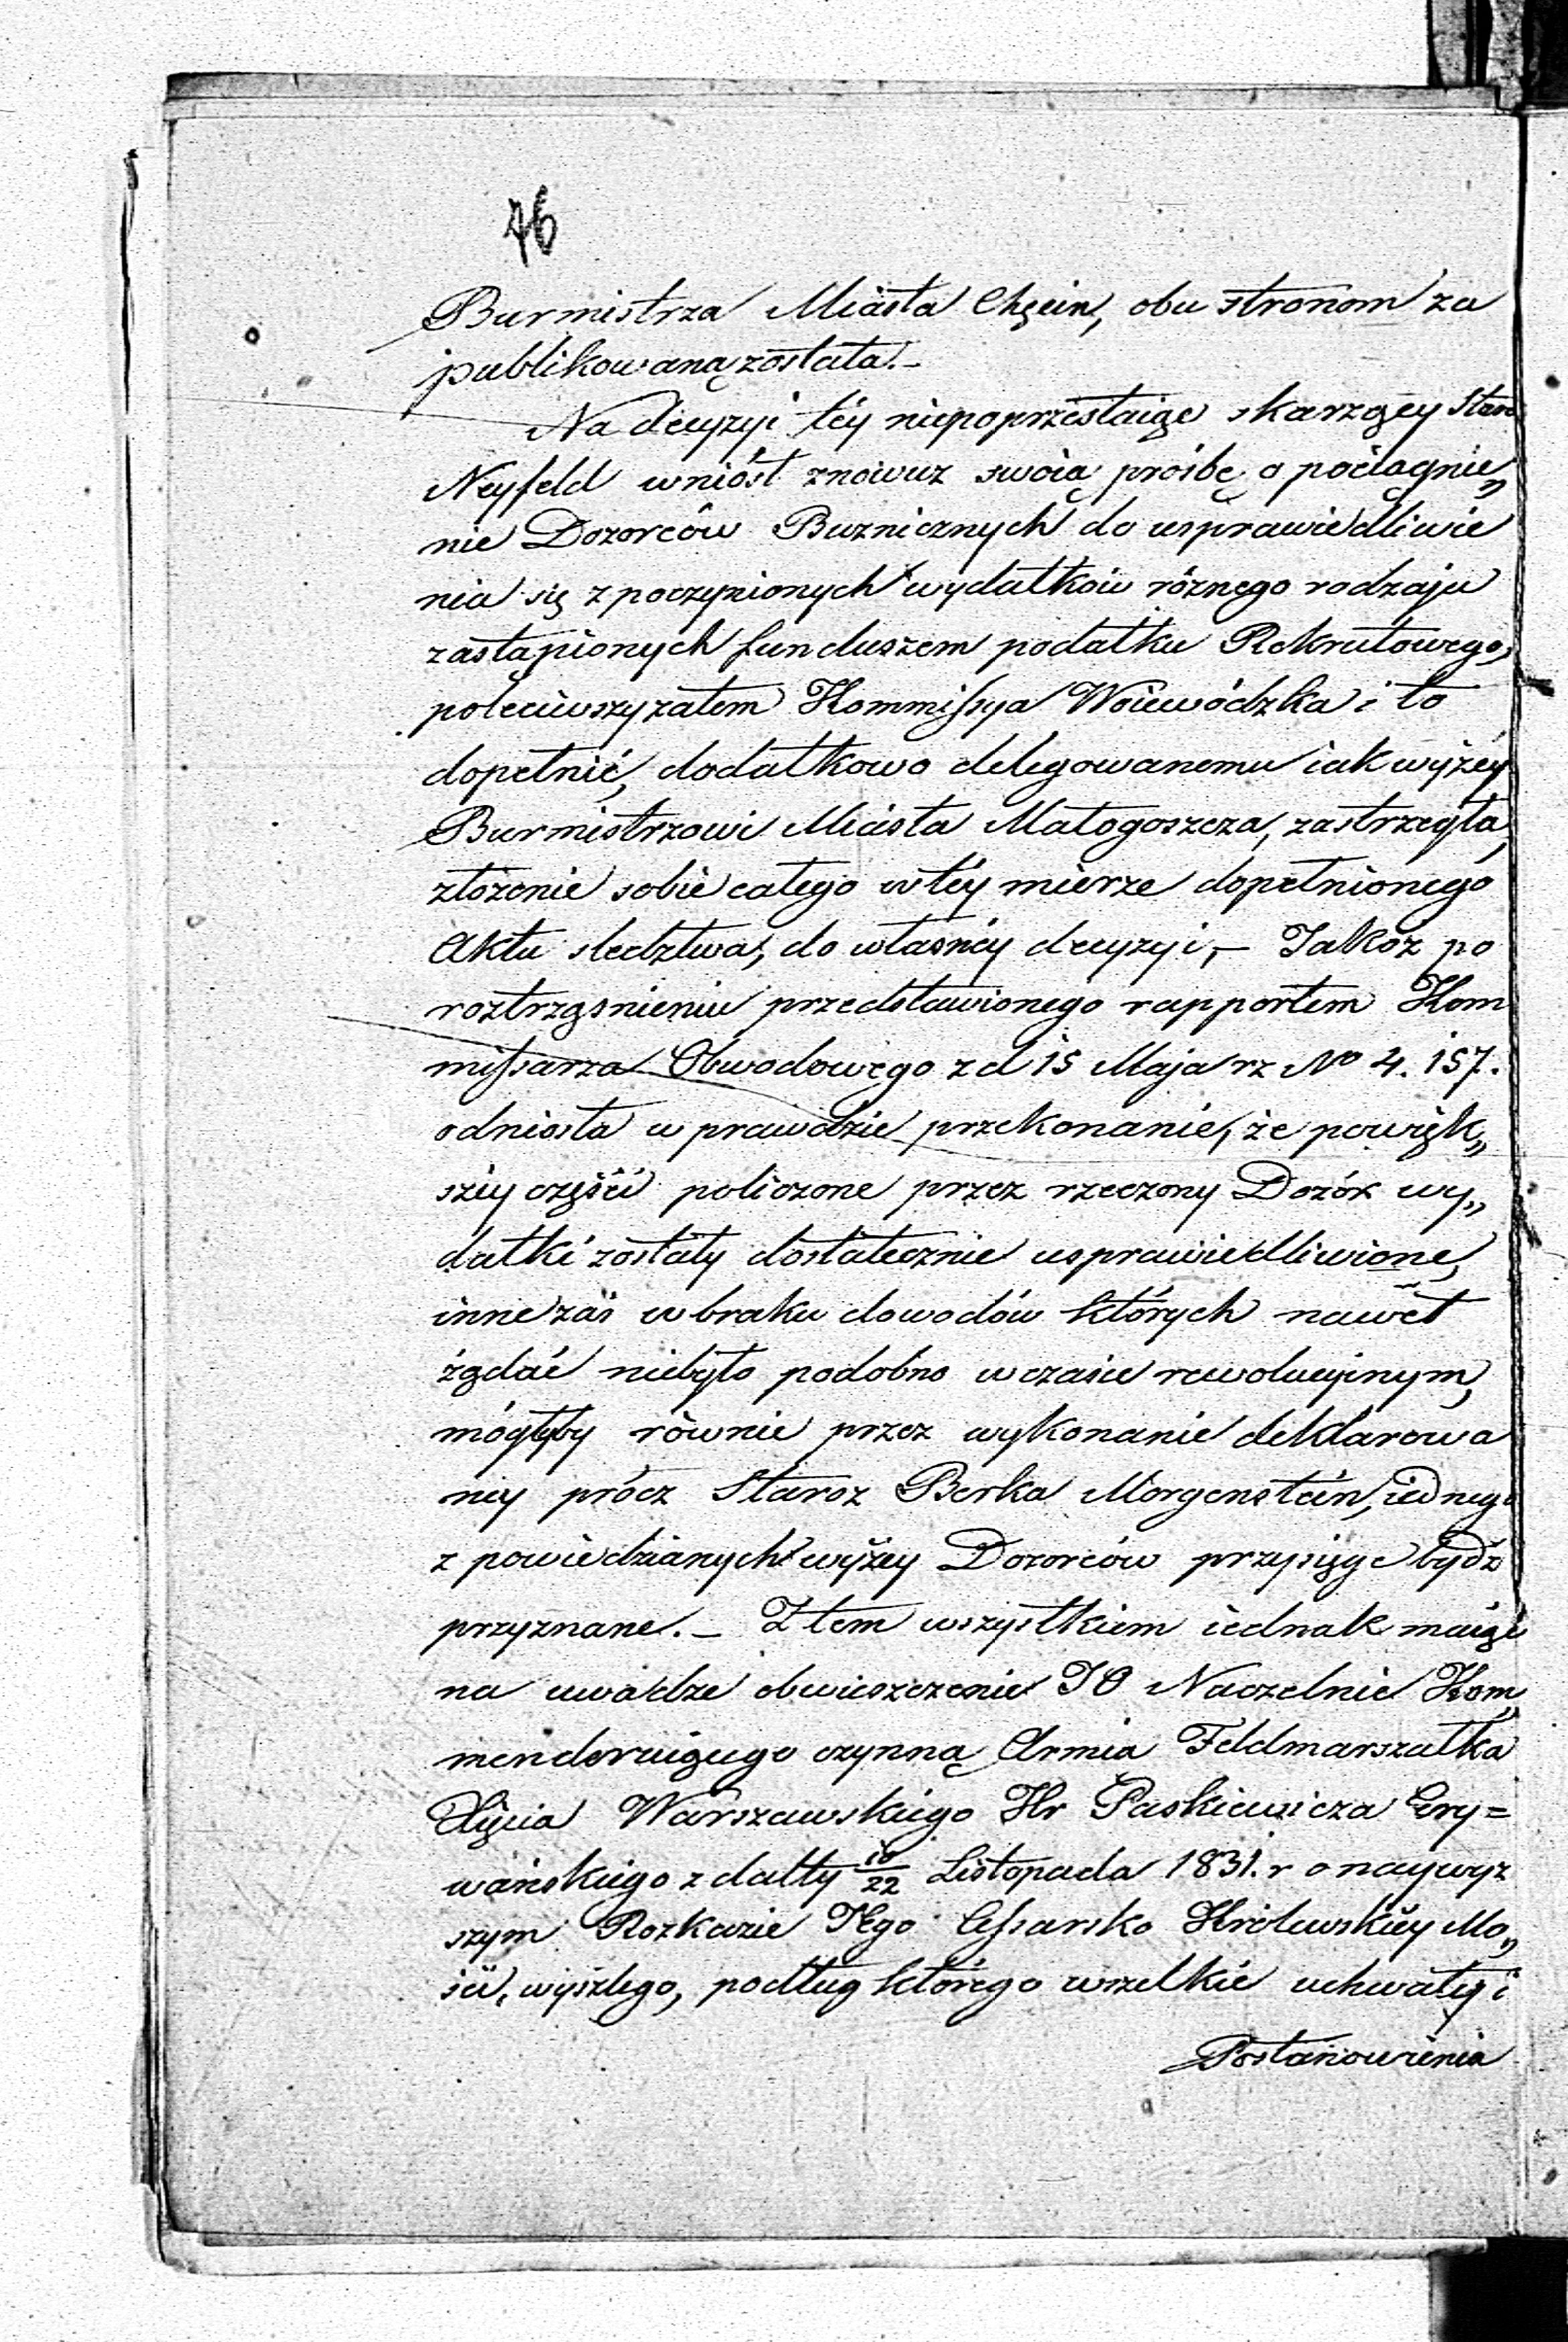 76
Burmistrza Miasta Chęcin, obu stronom za
publikowaną została.–
Na decyzyi téy niepoprzestaiąc skarzący Star
Neyfeld wniósł znowuz swoią prośbę o pociągnie„
nie Dozorców Buznicznych do usprawiedliwie
nia się z poczynionych wydatków róznego rodzaju
zastąpionych funduszem podatku Rekrutowego,
poleciwszy zatem Kommissya Woiewódzka i to
dopełnić, dodatkowo delegowanemu iak wyżéy
Burmistrzowi Miasta Małogoszcza, zastrzegła
złożenie sobie całego w téy mierze dopełnionego
Aktu sledztwa, do własnéy decyzyi,– Jakoż po
roztrząsnieniu przedstawionego rapportem Kom
missarza Obwodowego z d 15 Maja rz No 4.157.
odniosła w prawdzie przekonanie, że powięk„
széy części policzone przez rzeczony Dozór wy„
datki zostały dostatecznie usprawiedliwione,
inne zaś w braku dowodów których nawet
żądać niebyło podobno w czasie rewolucyinym,
mógłyby równie przez wykonanie deklarowa
néy prócz Staroz Berka Morgenstein, iednego
z powiedzianych wyżey Dozorców przysięgę bydź
przyznane.– Z tem wszystkiem iednak maiąc
na uwadze obwieszczenie JO Naczelnie Kom„
menderuiącego czynną Armia Feldmarszałka
Xięcia Warszawskiego Hr Paskiewicza Ery=
wańskiego z datty 10/22 Listopada 1831.r o naywyz
szym Rozkazie Jego Cesarsko Królewskiéy Mo„
ści, wyszłego, podług którego wszelkie uchwały i
Postanowienia